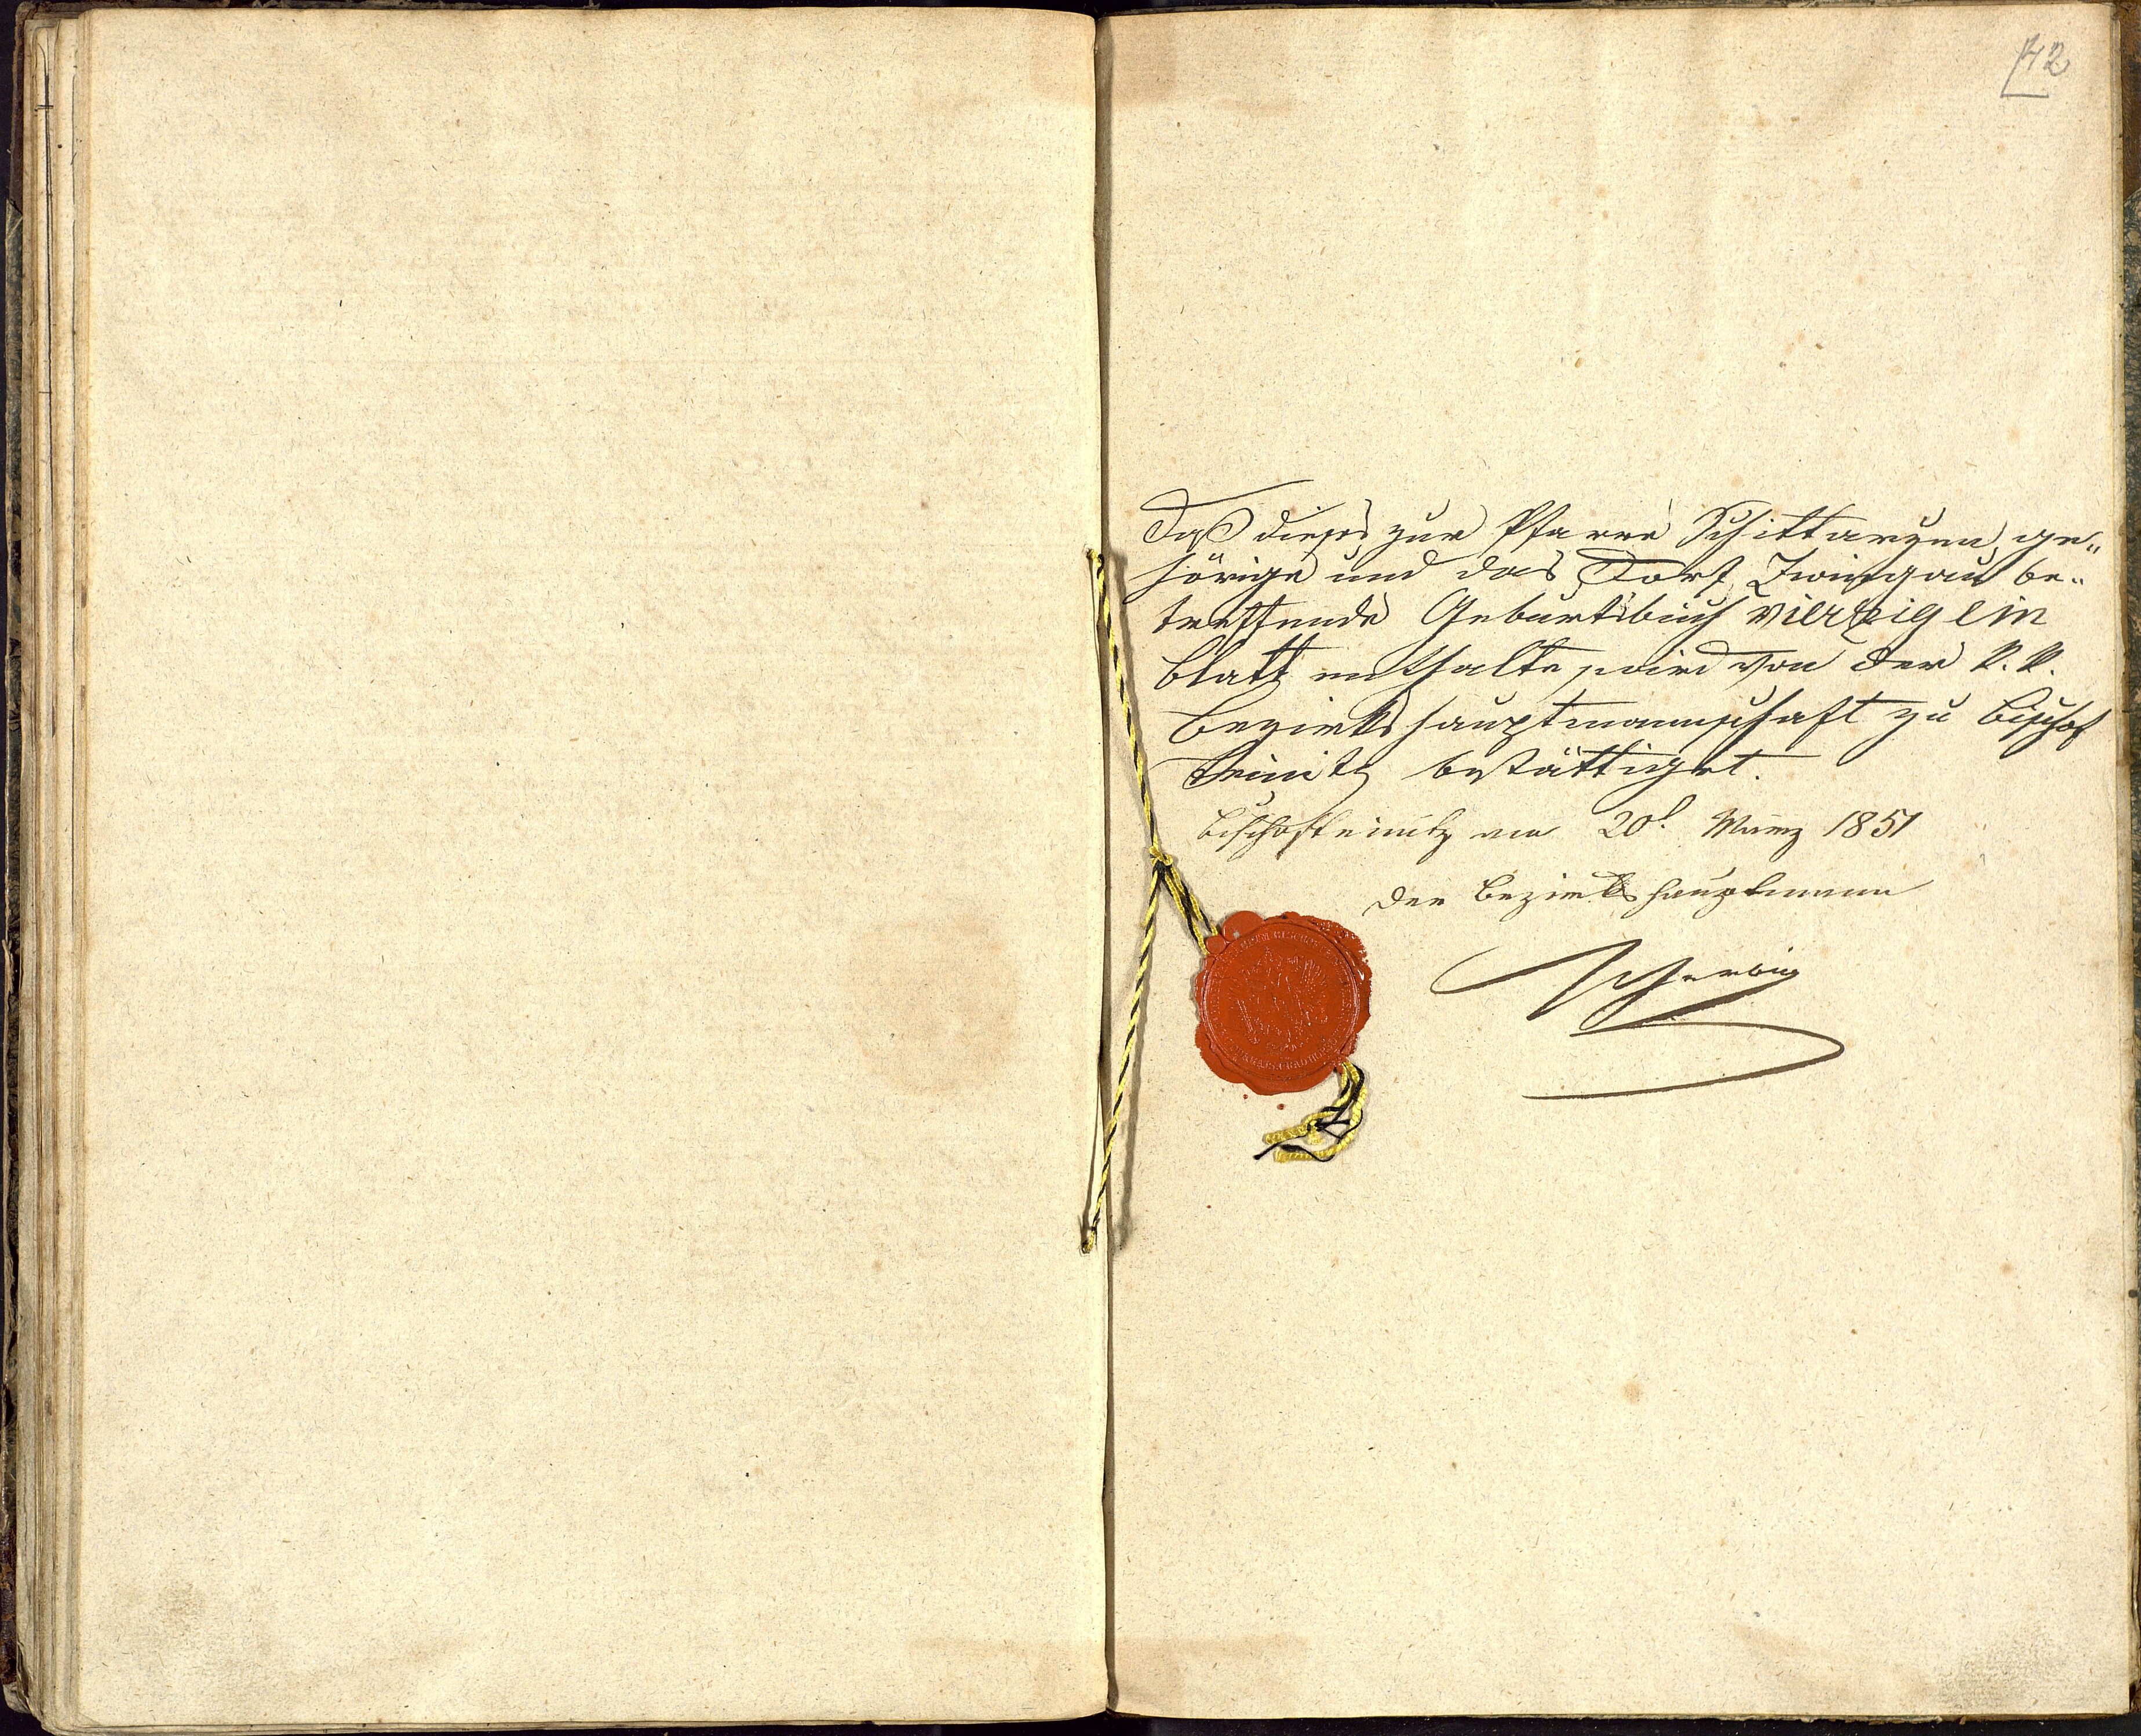 42
Daß dieses zur Pfarre Schittarzen ge„
hörige und das Dorf Zwingau be„
treffende Geburtsbuch vierzig ein
Blatt enthalte, wird von der k. k.
Bezirkshauptmannschaft zu Bischof
teinitz bestättiget.
Bischofteinitz am 20t. März 1851
Der Bezirkshauptmann